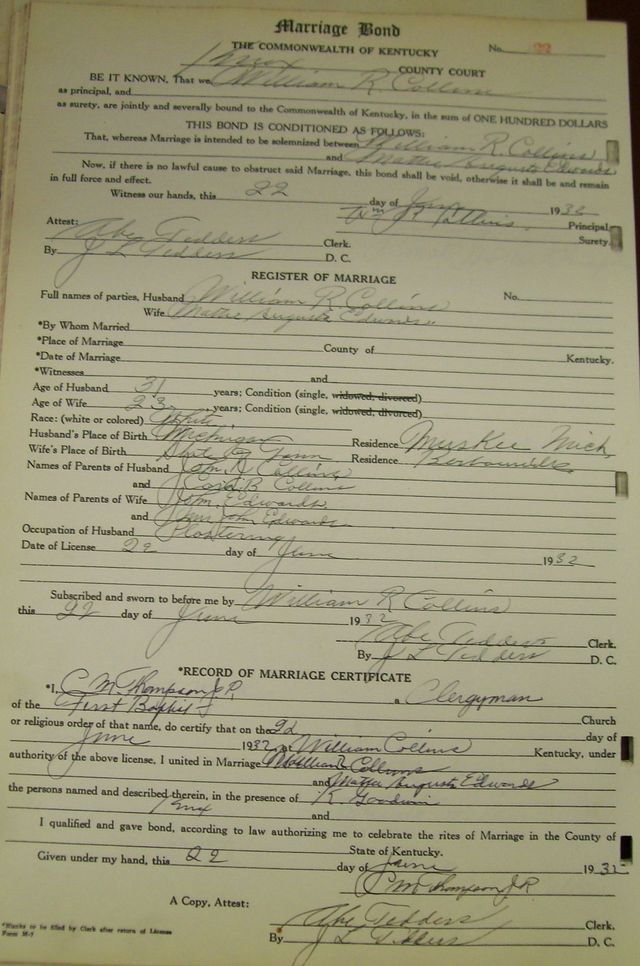 Marriage Bond
THE COMMONWEALTH OF KENTUCKY
No. 22
Knox COUNTY COURT
BE IT KNOWN, That we William R. Collins
as principal, and
as surety, are jointly and severally bound to the Commonwealth of Kentucky, in the sum of ONE HUNDRED DOLLARS
THIS BOND IS CONDITIONED AS FOLLOWS:
That, whereas Marriage is intended to be solemnized between William R. Collins
and Mattie Augusta Edwards
Now, if there is no lawful cause to obstruct said Marriage, this bond shall be void, otherwise it shall be and remain
in full force and effect.
Witness our hands, this 22 day of June 1932
Wm R Collins Principal
Surety.
Attest:
Abe Tedders Clerk.
By J L Tedders D. C.
REGISTER OF MARRIAGE
Full names of parties, Husband William R Collins No.
Wife Mattie Augusta Edwards
*By Whom Married
*Place of Marriage County of Kentucky.
*Date of Marriage
*Witnesses and
Age of Husband 31 years; Condition (single, widowed, divorced)
Age of Wife 23 years; Condition (single, widowed, divorced)
Race: (white or colored) White
Husband's Place of Birth Michigan Residence Muskee Mich
Wife's Place of Birth State of Tenn Residence Barbourville
Names of Parents of Husband Collins
and B Collins
Names of Parents of Wife John Edwards
and John Edwards
Occupation of Husband Plastering
Date of License 22 day of June 1932
Subscribed and sworn to before me by William R Collins
this 22 day of June 1932
Abe Tedders Clerk.
By J L Tedders D. C.
*RECORD OF MARRIAGE CERTIFICATE
*I, C M Thompson JR a Clergyman
of the First Baptist Church
or religious order of that name, do certify that on the 22 day of
June 1932 at William Collins Kentucky, under
authority of the above license, I united in Marriage William R Collins
and Mattie Augusta Edwards
the persons named and described therein, in the presence of R Goodwin
and
I qualified and gave bond, according to law authorizing me to celebrate the rites of Marriage in the County of
Knox State of Kentucky.
Given under my hand, this 22 day of June 1932
C M Thompson JR
A Copy, Attest:
Abe Tedders Clerk.
By J L Tedders D. C.
*Blanks to be filed by Clerk after return of License
Form M-7